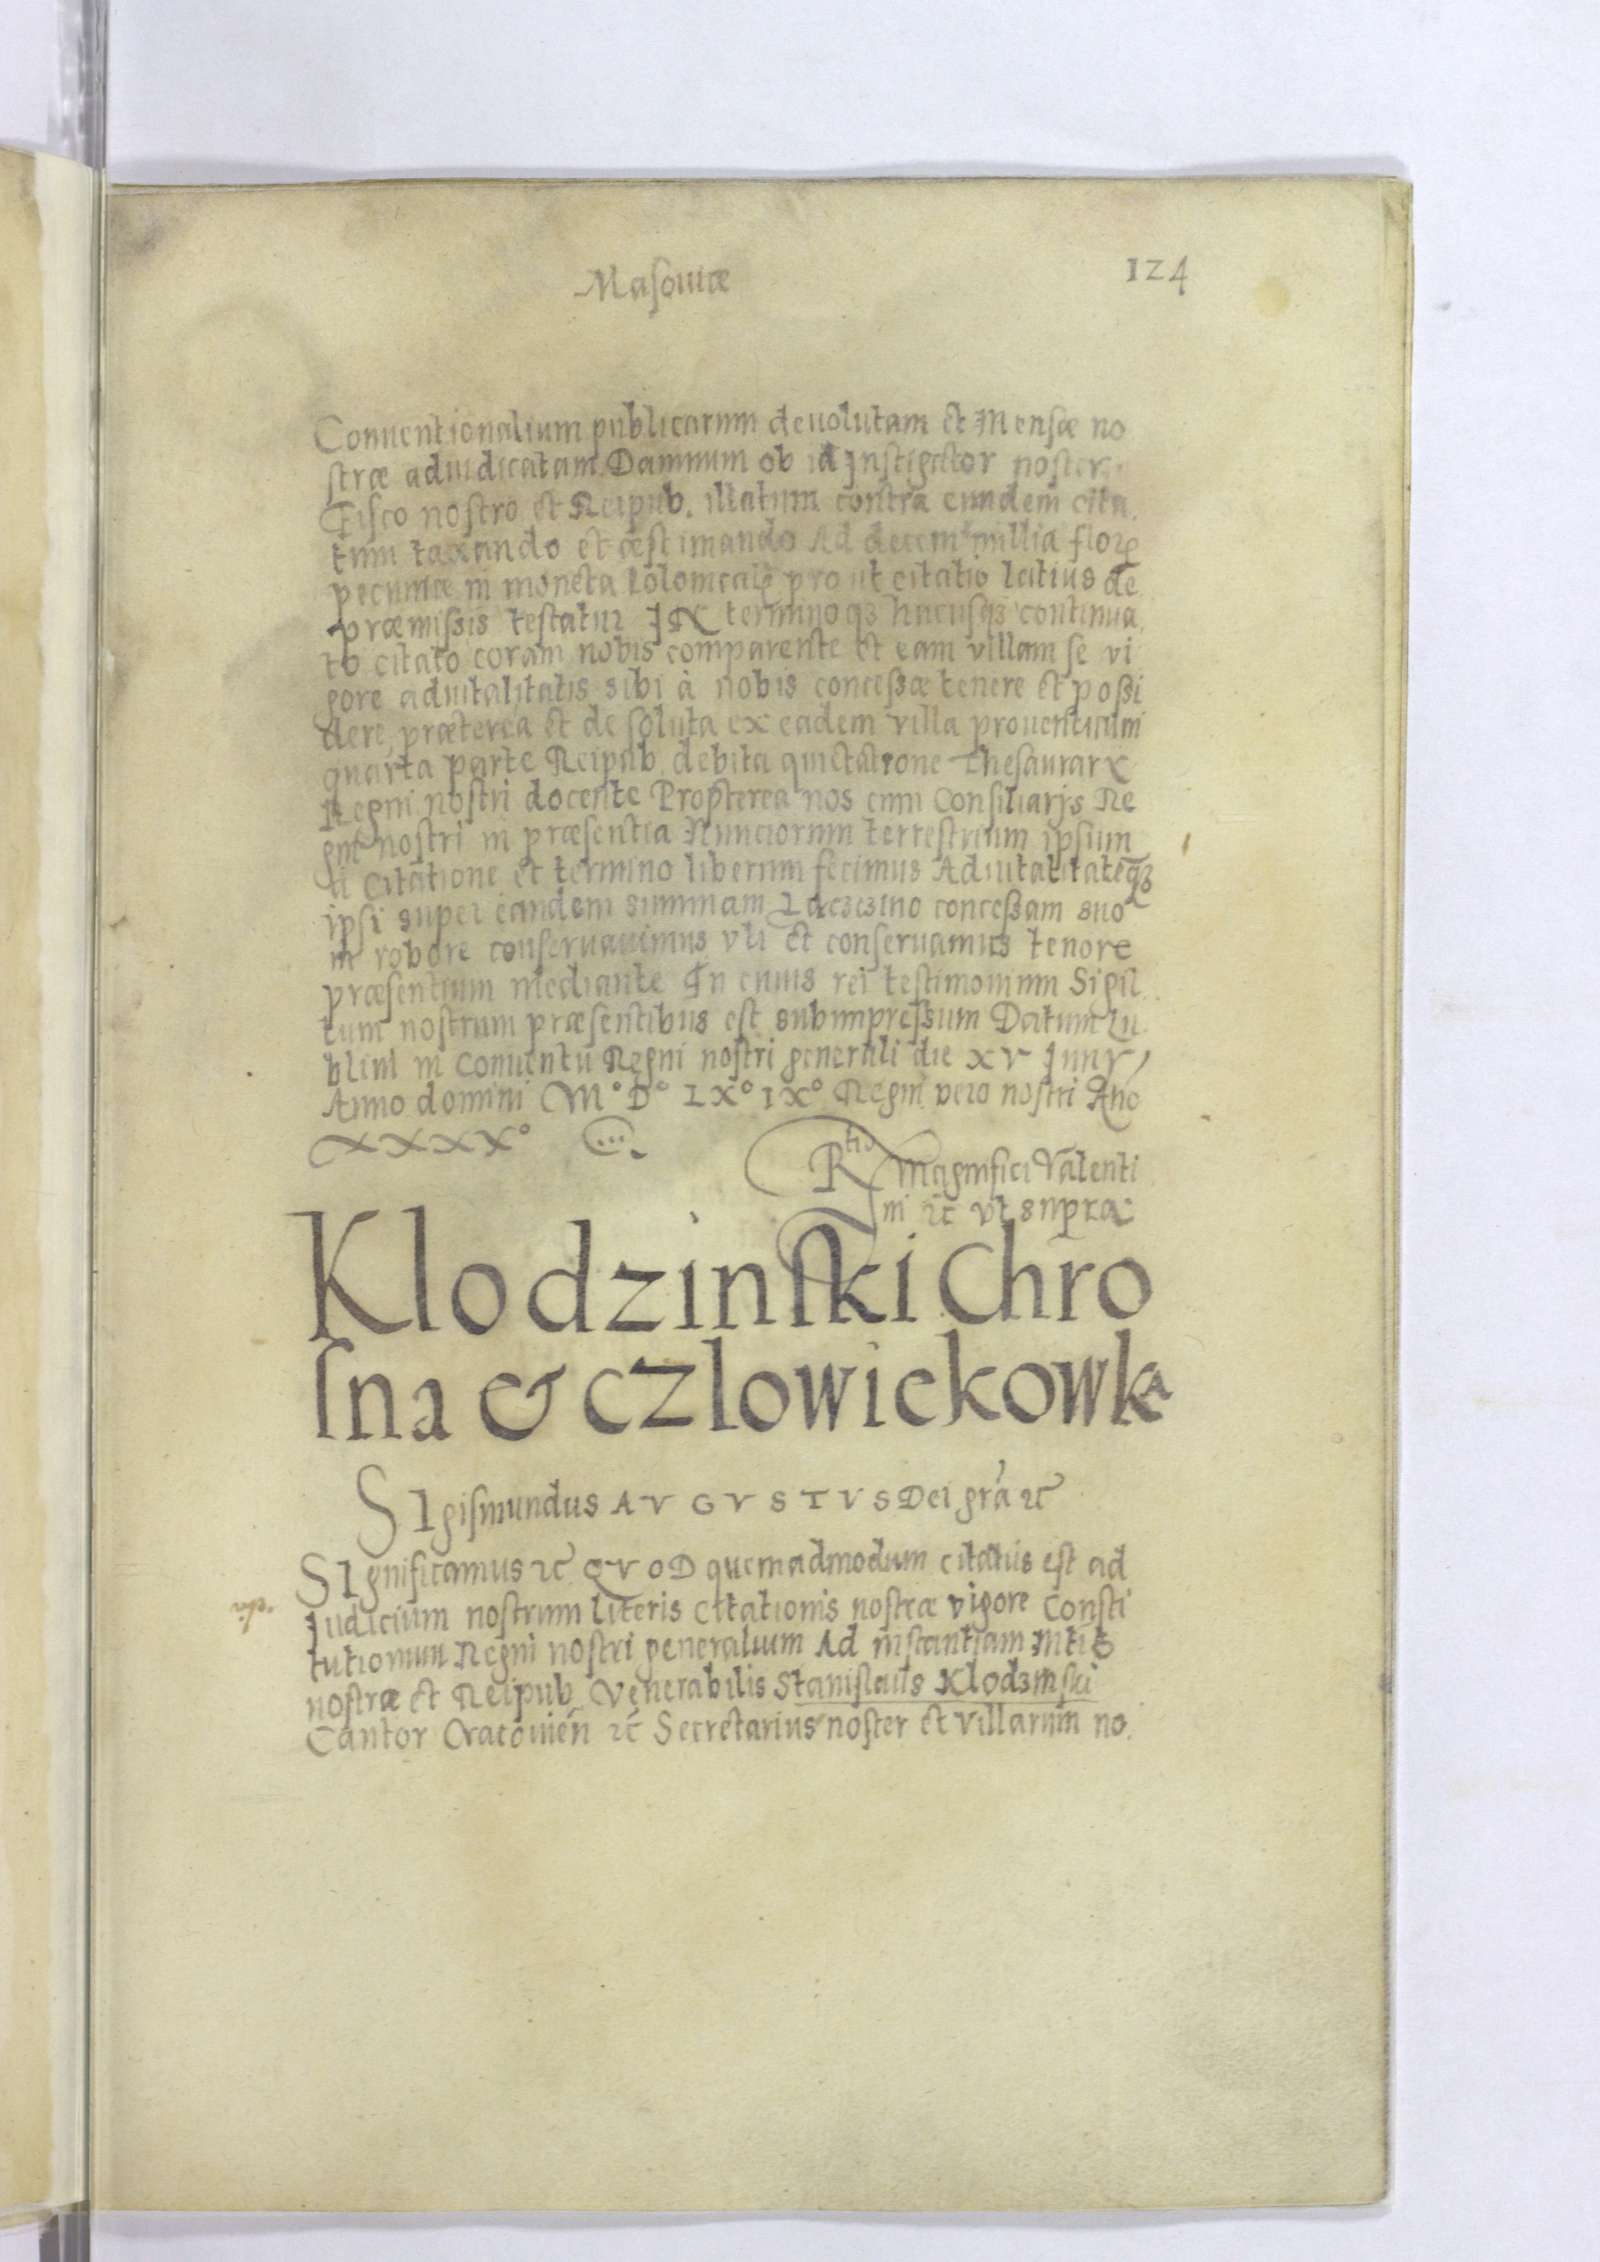 Masouiæ
124
Conuentionalium publicarum deuolutam et Mensæ no
stræ adiudicatam Damnum ob id Instigator noster
Fisco nostro et Reipub. illatum contra eundem cita
tum taxando et æstimando Ad decem millia flor
pecuniæ in moneta prout citatio latius de
præmissis testatur IN terminoqꝫ hucusqꝫ continua
to citato coram nobis comparente et eam villam se vi
gore aduitalitatis sibi à nobis concessæ tenere et possi
dere, præterea et de soluta ex eadem villa prouentuum
quarta parte Reipub. debita quietatione Thesaurarÿ
Regni nostri docente Propterea nos cum Consiliarijs Re
gni nostri in præsentia Nunciorum terrestrium ipsum
a citatione et termino liberum fecimus Aduitalitatēqꝫ
ipsi super eandem summam concessam suo
in robore conseruauimus vti et conseruamus tenore
præsentium mediante In cuius rei testimonium Sigil
lum nostrum præsentibus est subimpressum Datum Lu
blini in Conuentu Regni nostri generali die XV Junÿ
Anno domini M° D° LX° IX° Regni vero nostri Año
XXXX°
Rtio Magnifici Valenti
ni ꝛc̄ vt supra
Klodzinski Chro
sna & Czlowiekowka
SIgismundus AVGVSTVS Dei grã ꝛc̄
SIgnificamus ꝛc̄ QVOD quemadmodum citatus est ad
Judicium nostrum literis citationis nostræ vigore Consti
tutionum Regni nostri generalium Ad instantiam
nostræ et Reipub. Venerabilis Stanislaus Klodzinski
Cantor Cracouień ꝛc̄ Secretarius noster et villarum no